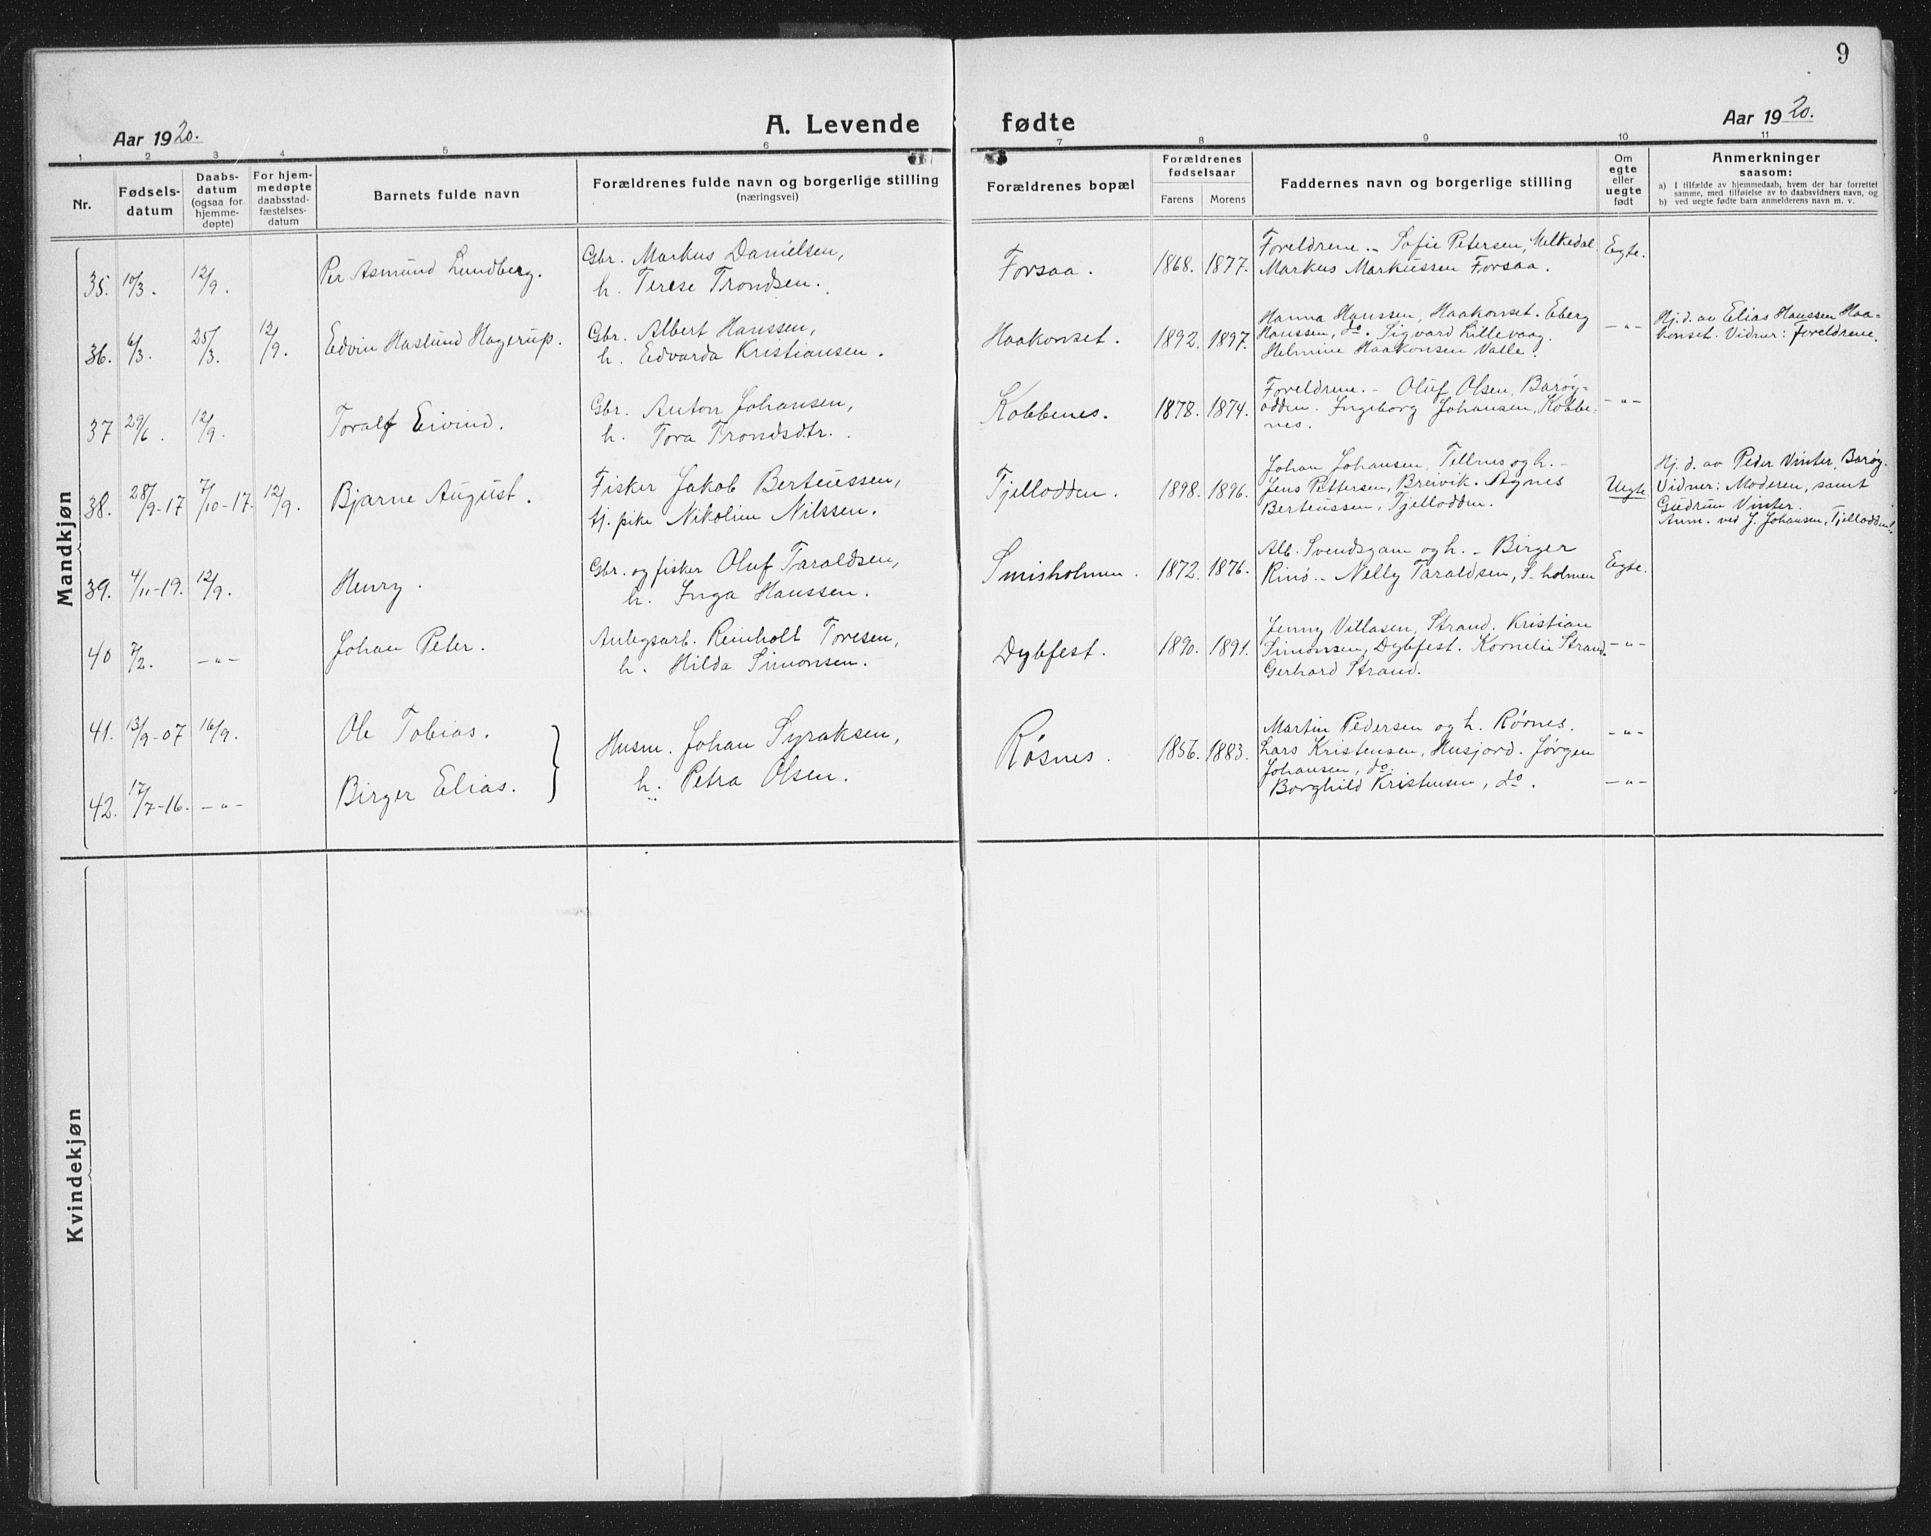 9
Aar 1920.
A. Levende fødte
Aar 1920.
1 2 3 4 5 6 7 8 9 10 11
Nr.
Fødsels-
datum
Daabs-
datum
(ogsaa for
hjemme-
døpte)
For hjem-
medøpte
daabsstad-
fæstelses-
datum
Barnets fulde navn
Forældrenes fulde navn og borgerlige stilling
(næringsvei)
Forældrenes bopæl
Forældrenes
fødselsaar
Farens Morens
Faddernes navn og borgerlige stilling
Om
egte
eller
uegte
født
Anmerkninger
saasom:
a) I tilfælde av hjemmedaab, hvem der har forrettet
samme, med tilføielse av to daabsvidners navn, og
b) ved uegte fødte barn anmelderens navn m. v.
Mandkjøn
35. 10/3. 12/9. Per Asmund Lundberg.
Gbr. Markus Danielsen,
h. Terese Trondsen.
Forsaa. 1868. 1877.
Foreldrene. – Sofie Petersen, Melkedal.
Markus Markussen Forsaa.
Egte.
36. 6/3. 25/3. 12/9. Edvin Haslund Hagerup.
Gbr. Albert Hanssen,
h. Edvarda Kristiansen.
Haakonset. 1892. 1897.
Hanna Hanssen, Haakonset. Eberg
Hanssen, do. Sigvard Lillevaag.
Helmine Haakonsen Valle.
–"–
Hj. d. av Elias Hanssen Haa-
konset. Vidner: foreldrene.
37 29/6. 12/9. Toralf Eivind.
Gbr. Anton Johansen,
h. Tora Trondsdtr.
Kobbenes. 1878. 1874.
Foreldrene. – Oluf Olsen, Barøy-
odden. Ingeborg Johansen, Kobbe-
nes.
–"–
38. 28/9-17 7/10-17. 12/9. Bjarne August.
Fisker Jakob Berteussen,
tj. pike Nikoline Nilssen.
Tjellodden. 1898. 1896.
Johan Johansen, Tellnes og h. –
Jens Pettersen, Breivik. Agnes
Berteussen, Tjellodden.
Uegte
Hj. d. av Peder Vinter, Barøy.
Vidner: Moderen, samt
Gudrun Vinter.
Anm. ved J. Johansen, Tjellodden.
39. 4/11-19. 12/9. Henry.
Gbr. og fisker Oluf Taraldsen,
h. Inga Hanssen.
Smisholmen. 1872. 1876.
Alb. Svendsgam og h. – Birger
Rinø – Nelly Taraldsen, S-holmen
Egte.
40 7/2. –"– Johan Peter.
Anlegsarb. Reinholt Toresen,
h. Hilda Simonsen.
Dybfest. 1890. 1891.
Jenny Villasen, Strand. Kristian
Simonsen, Dybfest. Kornelie Strand.
Gerhard Strand.
–"–
41. 13/9-07 16/9. Ole Tobias.
42. 17/7-16. –"– Birger Elias.
Husm. Johan Syraksen,
h. Petra Olsen.
Røsnes. 1856. 1883.
Martin Pedersen og h. Rørnes.
Lars Kristensen, Husjord. Jørgen
Johansen, do.
Borghild Kristensen, do.
–"–
–"–
Kvindekjøn